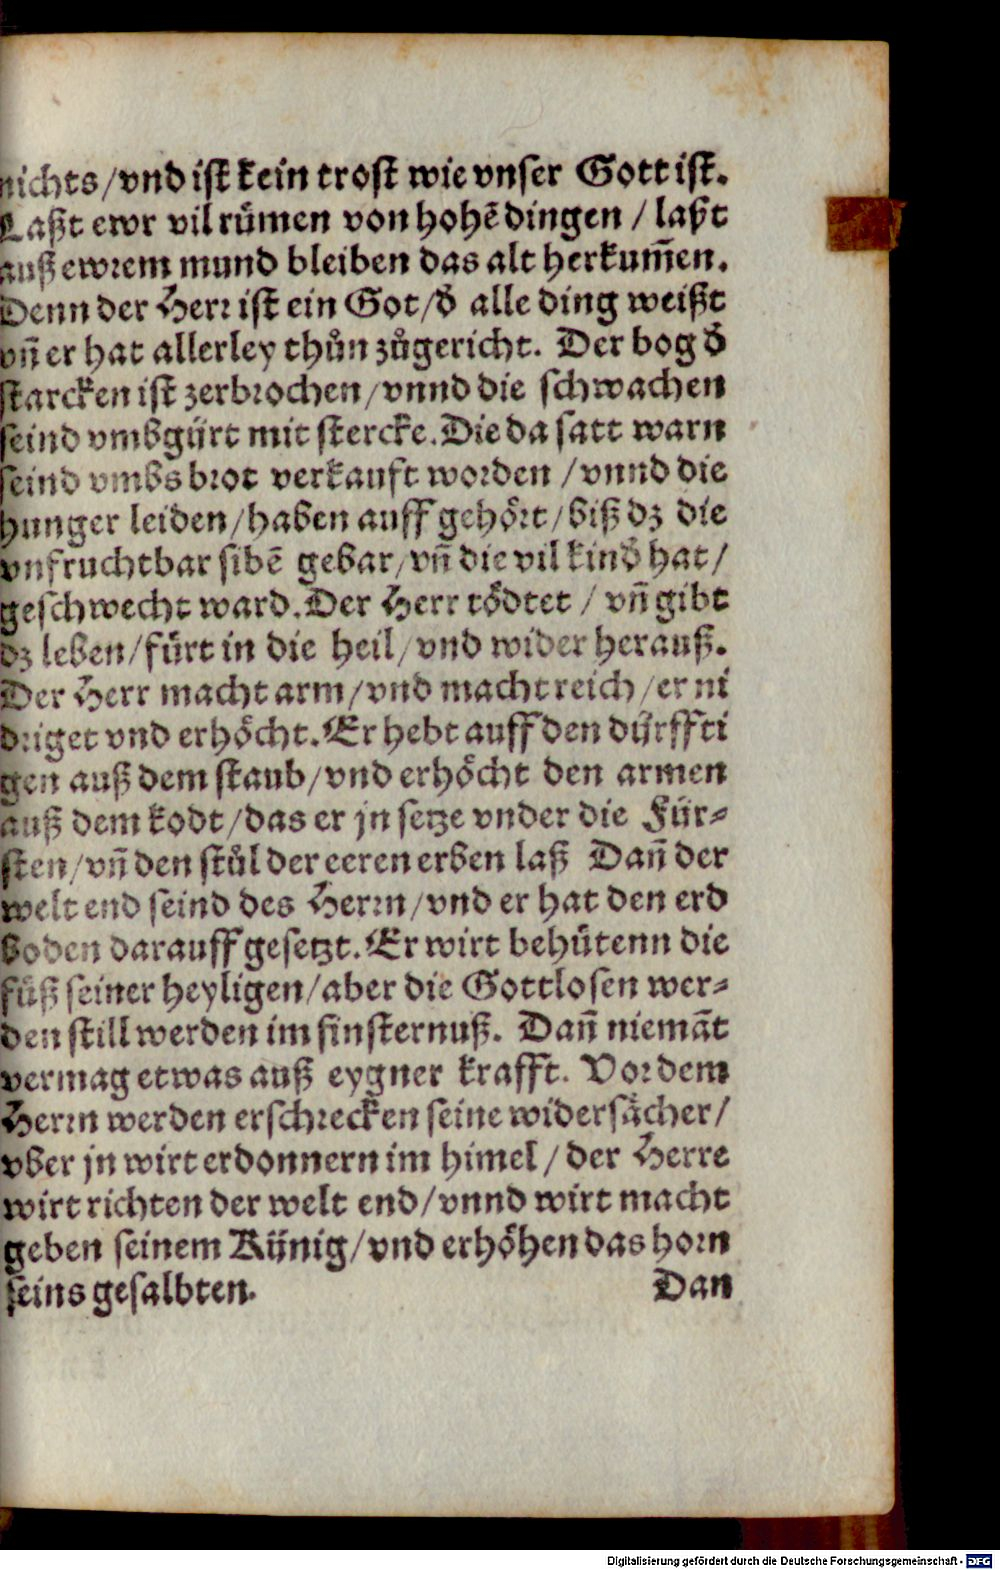 nichts/vnd ist kein trost wie vnser Gott ist.
Laßt ewr vil růmen von hohē dingen / laßt
auß ewrem mund bleiben das alt herkum̄en.
Denn der Herr ist ein Got/d̄ alle ding weißt
vn̄ er hat allerley thůn zůgericht. Der bog d̄
starcken ist zerbrochen/vnnd die schwachen
seind vmbgürt mit stercke. Die da satt warn
seind vmbs brot verkauft worden /vnnd die
hunger leiden/haben auff gehört/biß dz die
vnfruchtbar sibē gebar/vn̄ die vil kind̄ hat/
geschwecht ward. Der Herr tödtet / vn̄ gibt
dz leben/fürt in die heil/vnd wider herauß.
Der Herr macht arm/vnd macht reich/er ni
driget vnd erhöcht. Er hebt auff den dürffti
gen auß dem staub/vnd erhöcht den armen
auß dem kodt/das er jn setze vnder die Für⸗
sten/vn̄ den stůl der eeren erben laß Dan̄ der
welt end seind des Herrn/vnd er hat den erd
boden darauff gesetzt. Er wirt behütenn die
füß seiner heyligen/aber die Gottlosen wer⸗
den still werden im finsternuß. Dan̄ niemāt
vermag etwas auß eygner krafft. Vor dem
Herrn werden erschrecken seine widersächer/
vber jn wirt erdonnern im himel/der Herre
wirt richten der welt end/vnnd wirt macht
geben seinem Künig/vnd erhöhen das horn
seins gesalbten. Dan
Digitalisierung gefördert durch die Deutsche Forschungsgemeinschaft - DFG